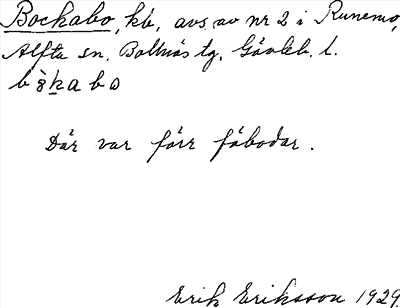 Bockabo, kb, avs. av nr 2 i Runemo,
Alfta sn, Bollnäs tg, Gävleb. l.
Där var förr fäbodar.
Erik Eriksson 1929.